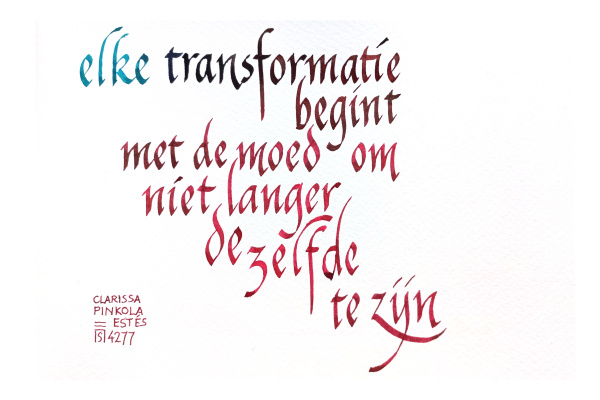 elke transformatie
begint
met de moed om
niet langer
dezelfde
te zijn
CLARISSA
PINKOLA
ESTÉS
4277